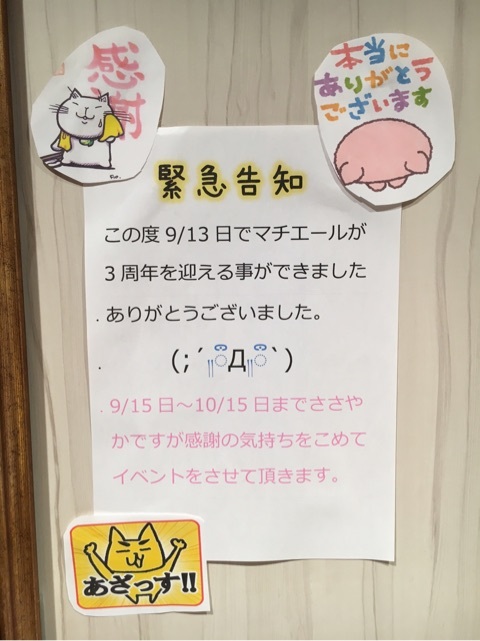 感謝
本当に
ありがとう
ございます
緊急告知
この度 9/13 日でマチエールが
3 周年を迎える事ができました
.ありがとうございました。
.
(;´༎ຶД༎ຶ`)
.9/15 日～10/15 日までささや
かですが感謝の気持ちをこめて
イベントをさせて頂きます。
あざっす!!